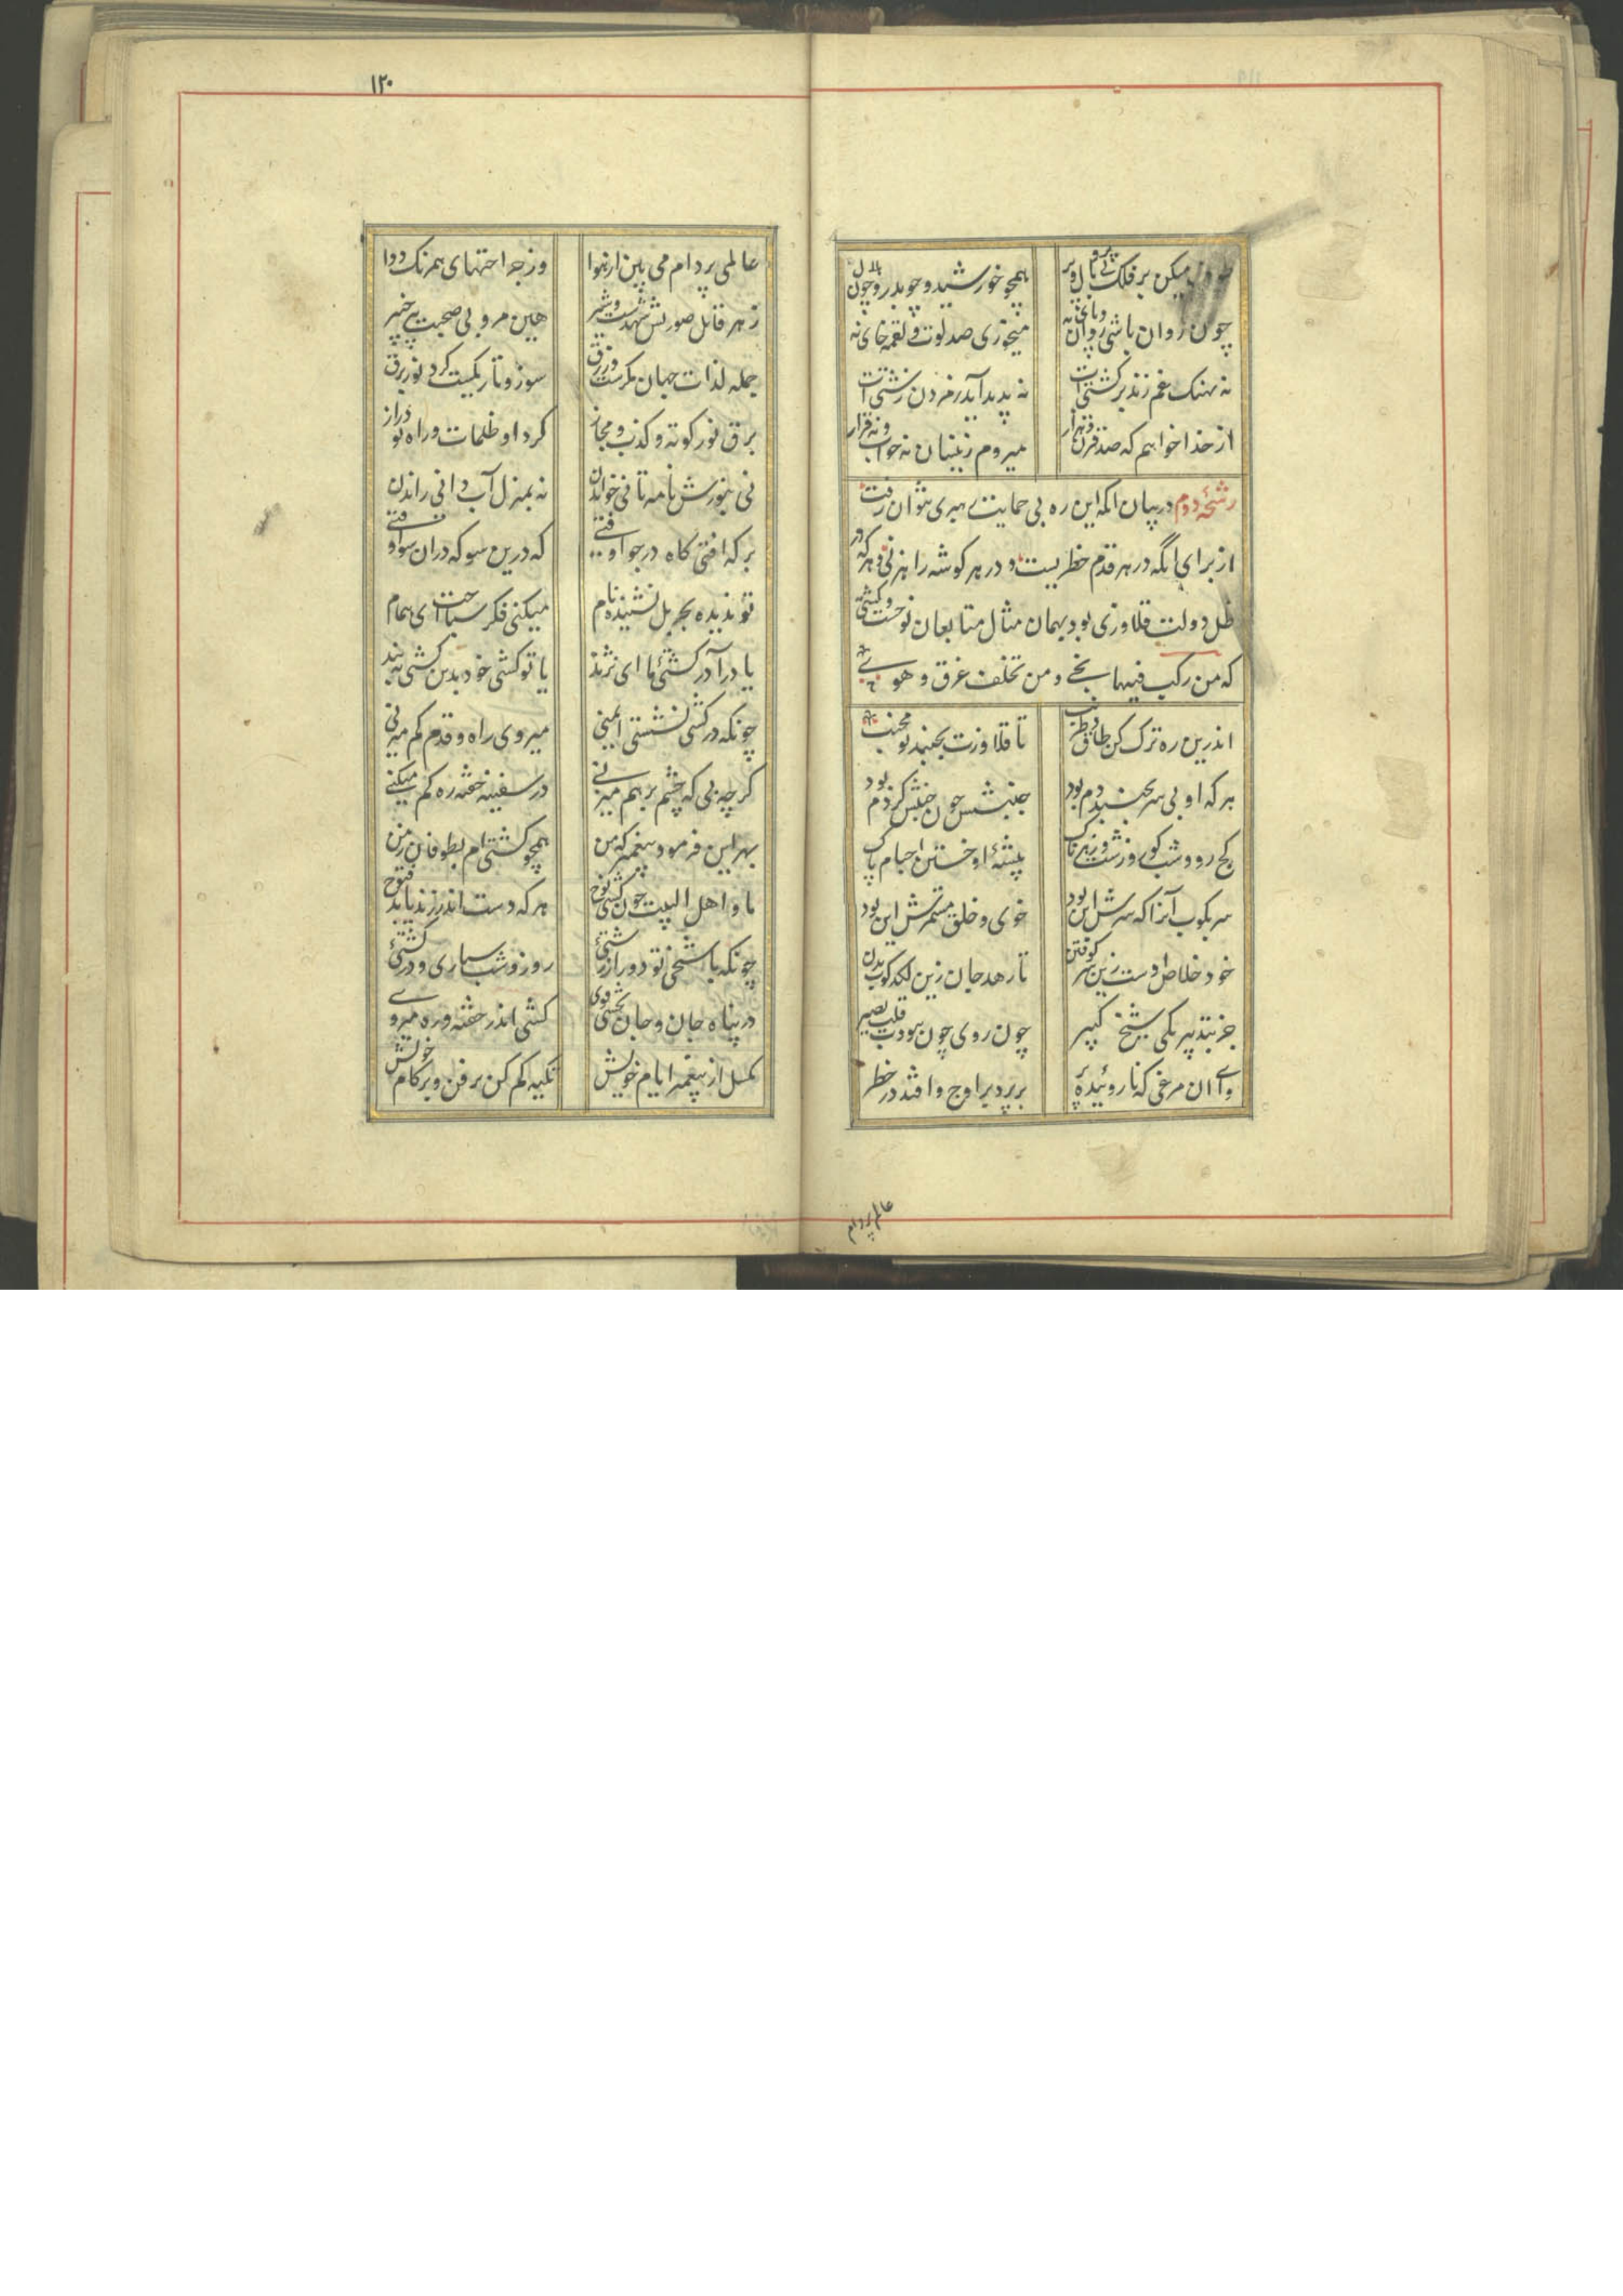 طوف میکن بر فلک بی پر و بال
همچو خورشید و چو بدر و چون هلال
چون روان باشی روان و پای نه
میخوری صد لوت و لقمه خای نه
نه نهنک غم زند بر کشتیت
نه پدید آید ز مردن زشتیت
از خدا خواهم که صد قرن و هزار
میروم زینسان نه خواب و نه قرار
رشحهٔ دوم در بیان انکه این ره بی حمایت رهبری نتوان رفت
از برای آنگه در هر قدم خطریست و در هر کوشه راهزنی و هر که در
ظل دولت قلاوزی بود بهمان مثال متابعان نوحست و کشتی
که من رکب فیها نجی و من تخلف غرق و هو
اندرین ره ترک کن طاق و طرنب
تا قلاوزت نجنبد تو مجنب
هر که او بی سر بجنبد دم بود
جنبشش چون جنبش کژدم بود
کج رو و شب کور و زشت و زهرناک
پیشهٔ او خستن اجسام پاک
سر بکوب آنرا که سرش این بود
خوی و خلق مستمرش این بود
خود خلاص اوست زین سر کوفتن
تا رهد جان زین لکدکوب بدن
جز بتدبیر یکی شیخ کبیر
چون روی چون نبودت قلب بصیر
وای آن مرغی که نا روئیده پر
بر پرد بر اوج و افتد در خطر
عالم پر دام
۱۲۰
عالمی پر دام می بین از هوا
وز جراحتهای همرنک دوا
زهر قاتل صورتش شهدست و شیر
هین مرو بی صحبت پیر خبیر
جمله لذات جهان مکرست و زرق
سوز و تاریکیست کرد نور برق
برق نور کوته و کذب و مجاز
کرد او ظلمات و راه تو دراز
نی بنورش نامه تانی خواندن
نه بمنزل آب دانی راندن
برکه افتی کاه در جو اوفتی
که درین سو که در ان سو اوفتی
تو ندیده بجر پل نشنیده نام
میکنی فکر سیاحت ای همام
یا در آ در کشتئ ما ای نژند
یا تو کشتی خود بدین کشتی به بند
چونکه در کشتی نشستی ایمنی
میروی راه و قدم کم میزنی
کرچه بی که چشم بر هم میزنی
در سفینه خفته ره کم میکنی
بهر این فرمود پیغمبر که من
همچو کشتی ام بطوفان زمن
ما و اهل البیت چون کشتی نوح
هر که دست اندر زند یابد فتوح
چونکه با شیخی تو دور از زشتئ
روز و شب سیاری و در کشتئ
در پناه جان و جان بخشی توی
کشتی اندر خفته و ره میروی
مکسل از پیغمبر ایام خویش
تکیه کم کن بر فن و بر کام خویش